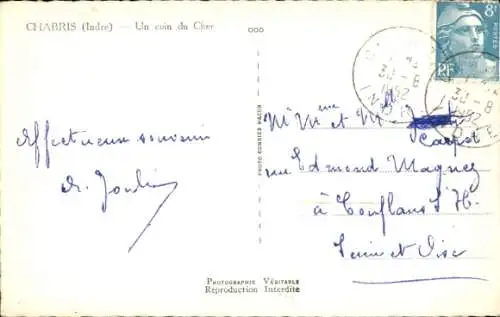 CHABRIS (Indre) — Un coin du Cher
8F
POSTES
RF
30 - 8
1952
INDRE
30 - 8
1952
Affectueux souvenir
Mr et Mme
Carpot
rue Edmond Magnez
à Conflans St H.
Seine et Oise
PHOTO COMBIER MACON
Photographie Véritable
Reproduction Interdite